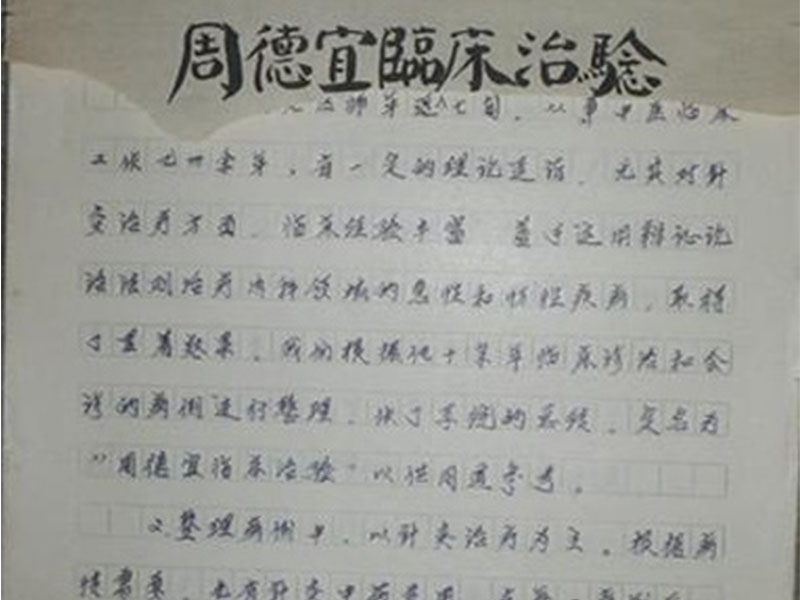 周德宜臨床治驗
医师年近七旬，从事中医临床
工作七十余年，有一定的理论造诣，尤其对针
灸治疗方面，临床经验丰富，善于运用辩证论
治法则治疗内科领域的急性和慢性疾病，取得
了显著效果，我们根据他十余年临床诊治和会
诊的病例进行整理，做了系统的总结，定名为
“周德宜临床治验”以供同道参考。
在整理病例中，以针灸治疗为主，根据病
情需要，也有针灸中药